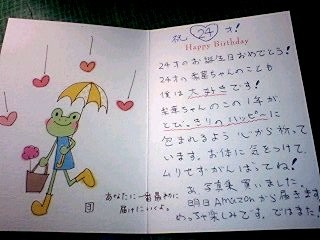 あなたに一番最初に
届けにいくよ。
祝 24 才!
Happy Birthday
24才のお誕生日おめでとう!
24才の ちゃんのことも
僕は大好きです!
ちゃんのこの1年が
とびっきりのハッピーに
包まれるよう 心から祈って
います。お体に気をつけて、
ムリせずがんばってね!
あ、写真集 買いました。
明日Amazonから届きます
めっちゃ楽しみです。ではまた!